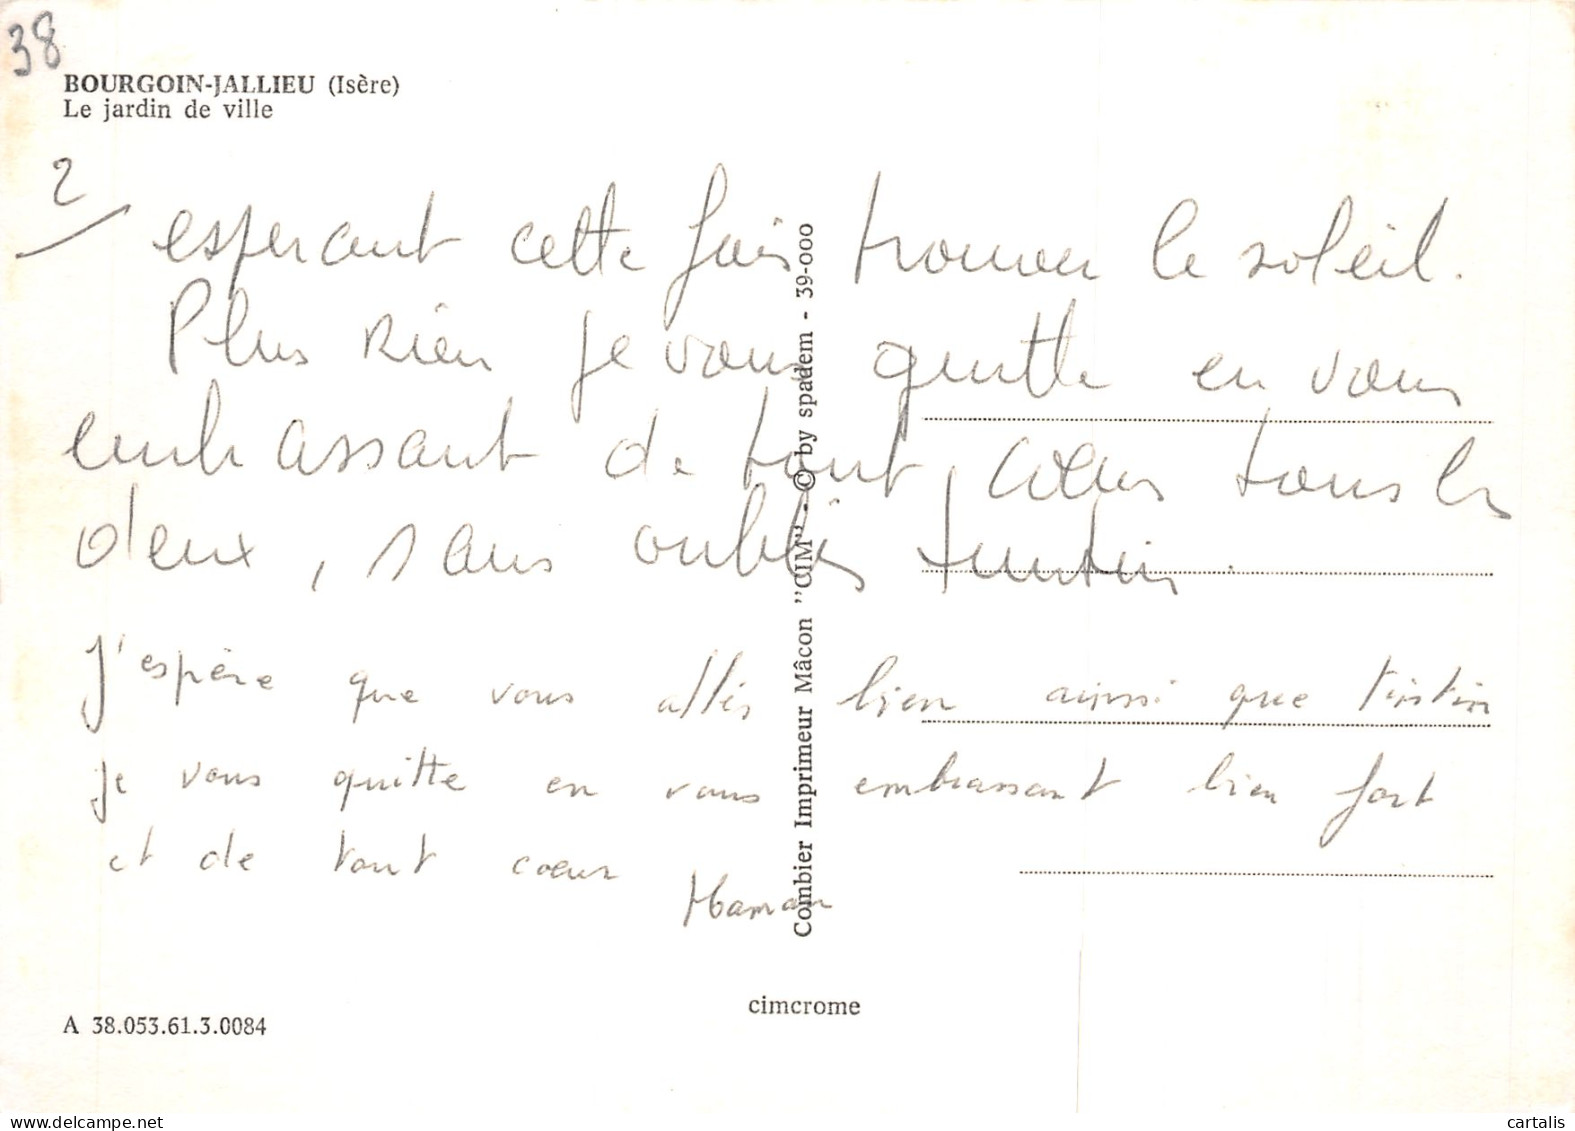 38
BOURGOIN-JALLIEU (Isère)
Le jardin de ville
2/
esperant cette fois trouver le soleil.
Plus Rien je vous quitte en vous
embrassant de tout coeur tous les
deux, sans oublier tintin.
J'espère que vous allés bien ainsi que tintin
je vous quitte en vous embrassant bien fort
et de tout coeur
Maman
Combier Imprimeur Mâcon "CIM" - © by spadem - 39-000
cimcrome
A 38.053.61.3.0084
www.delcampe.net
cartalis